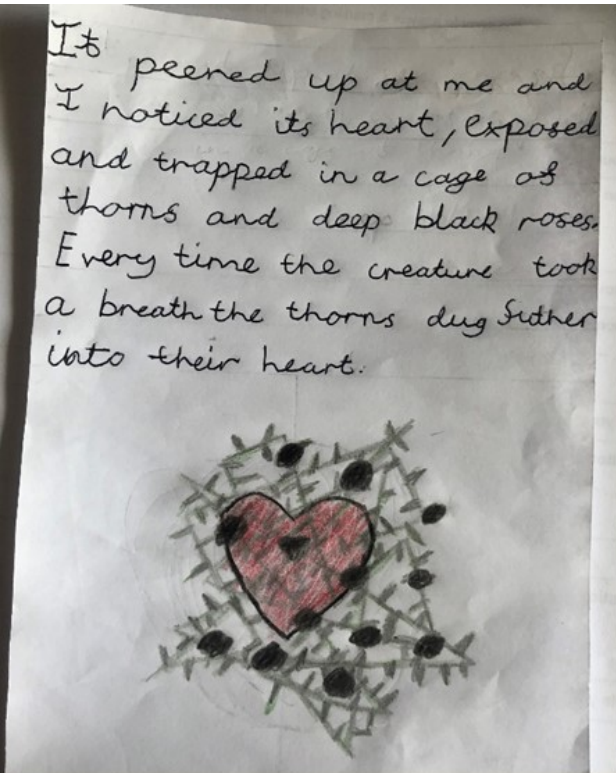 It
peered up at me and
I noticed its heart, exposed
and trapped in a cage of
thorns and deep black roses.
Every time the creature took
a breath the thorns dug
into their heart.